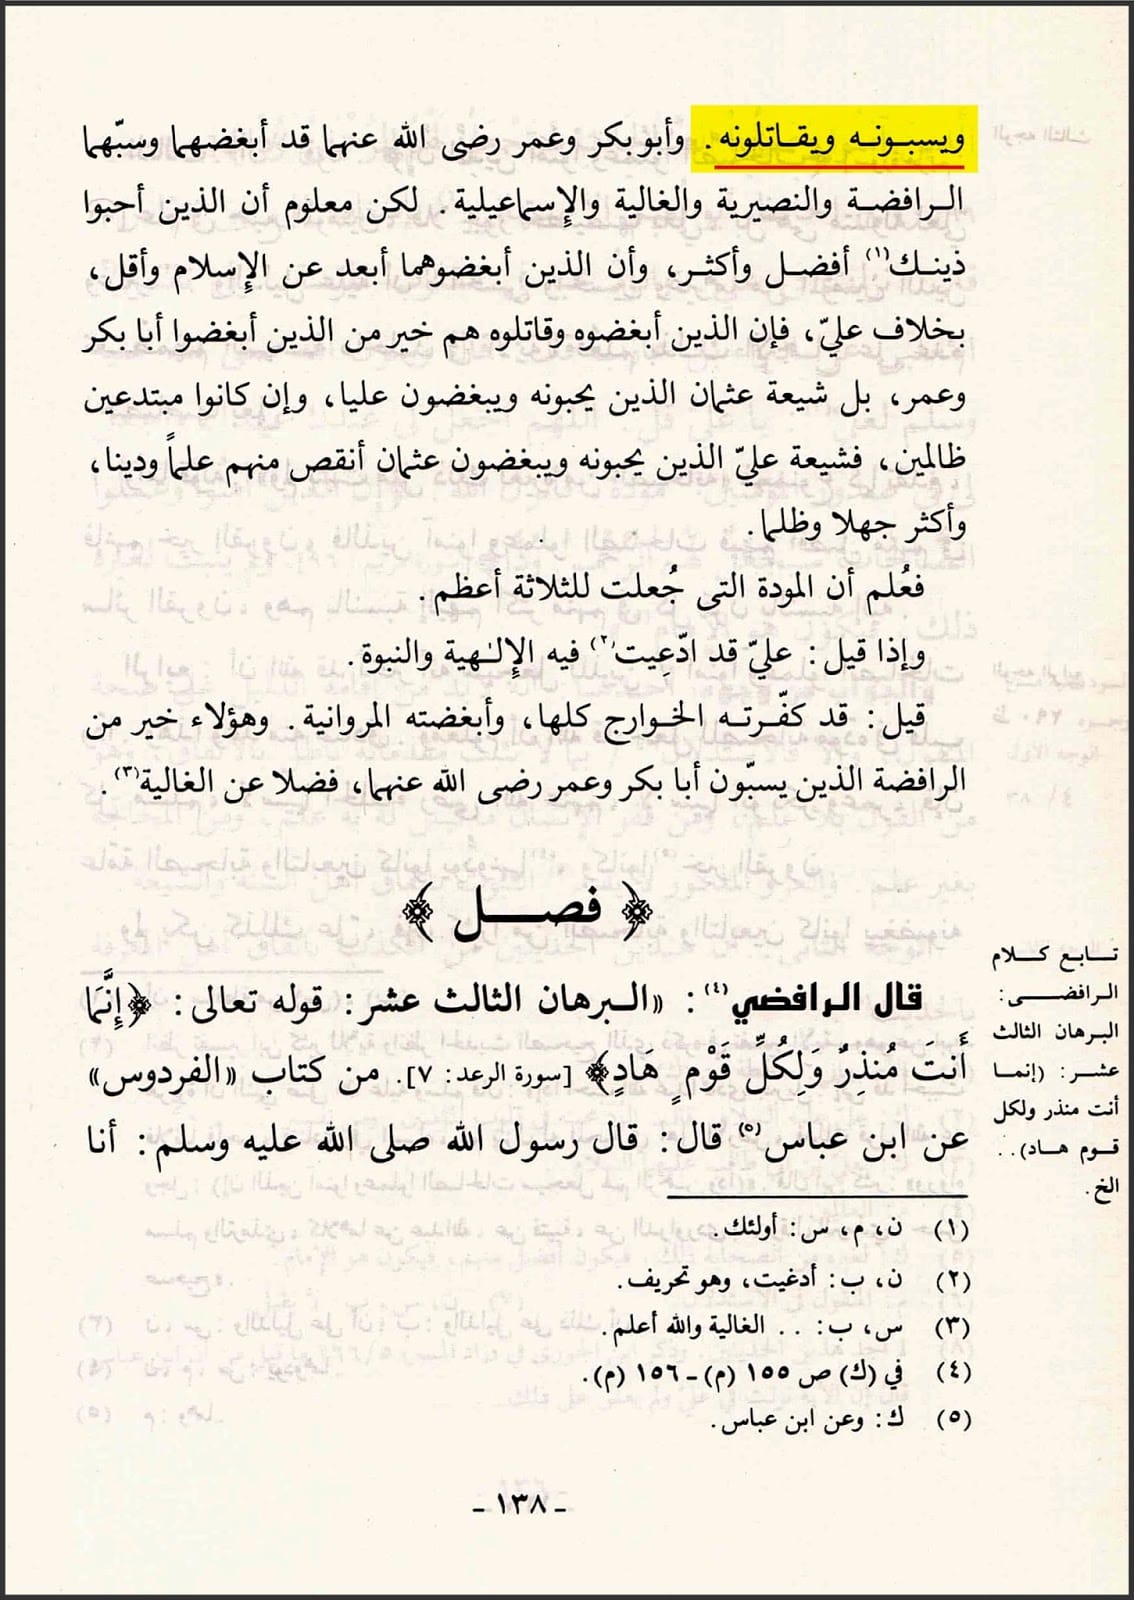 ويسبونه ويقاتلونه. وأبو بكر وعمر رضى الله عنهما قد أبغضهما وسبّهما
الرافضة والنصيرية والغالية والإسماعيلية. لكن معلوم أن الذين أحبوا
ذينك(١) أفضل وأكثر، وأن الذين أبغضوهما أبعد عن الإسلام وأقل،
بخلاف عليّ، فإن الذين أبغضوه وقاتلوه هم خير من الذين أبغضوا أبا بكر
وعمر، بل شيعة عثمان الذين يحبونه ويبغضون عليا، وإن كانوا مبتدعين
ظالمين، فشيعة عليّ الذين يحبونه ويبغضون عثمان أنقص منهم علماً ودينا،
وأكثر جهلا وظلما.
فعُلم أن المودة التى جُعلت للثلاثة أعظم.
وإذا قيل: عليّ قد ادّعِيت(٢) فيه الإلٰهية والنبوة.
قيل: قد كفّرته الخوارج كلها، وأبغضته المروانية. وهؤلاء خير من
الرافضة الذين يسبّون أبا بكر وعمر رضى الله عنهما، فضلا عن الغالية(٣).
﴿ فصــل ﴾
قال الرافضي(٤): «البرهان الثالث عشر: قوله تعالى: ﴿إِنَّمَا
أَنتَ مُنذِرٌ وَلِكُلِّ قَوْمٍ هَادٍ﴾ [سورة الرعد: ٧]. من كتاب «الفردوس»
عن ابن عباس(٥) قال: قال رسول الله صلى الله عليه وسلم: أنا
تابع كلام
الرافضى:
البرهان الثالث
عشر: (إنما
أنت منذر ولكل
قوم هاد)..
الخ.
(١) ن، م، س: أولئك.
(٢) ن، ب: أدغيت، وهو تحريف.
(٣) س، ب: .. الغالية والله أعلم.
(٤) في (ك) ص ١٥٥ (م) - ١٥٦ (م).
(٥) ك: وعن ابن عباس.
- ١٣٨ -